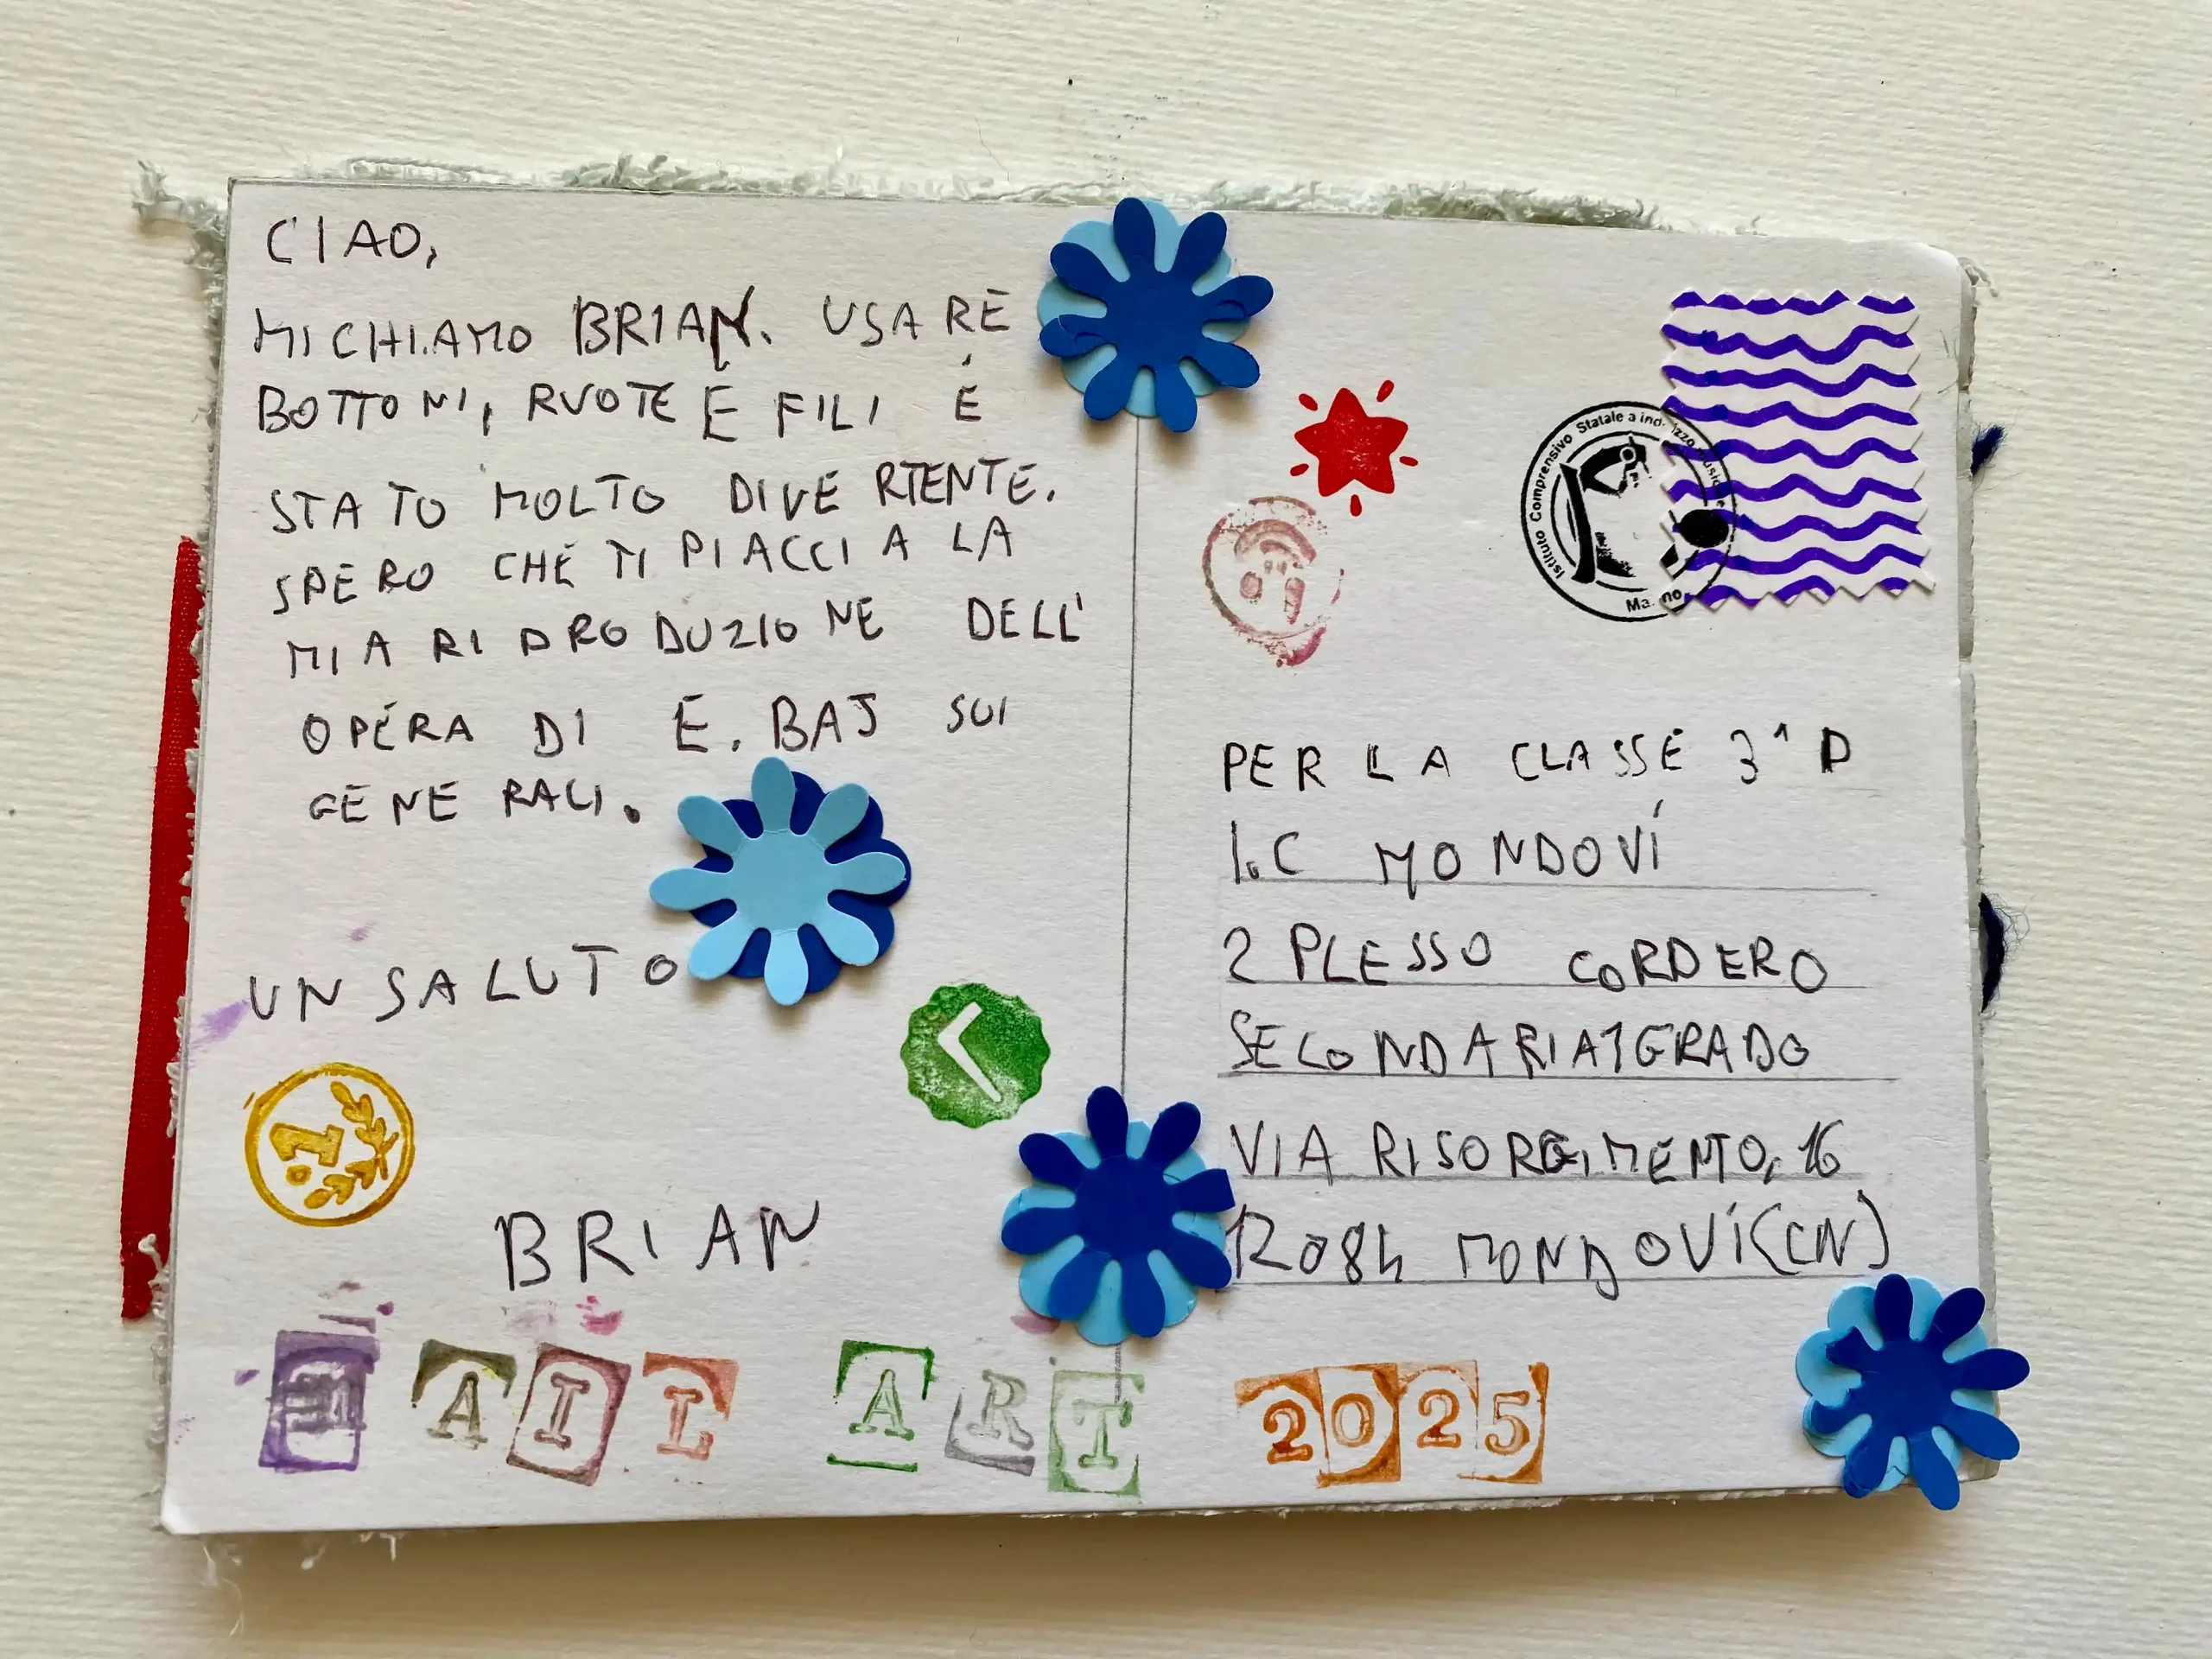 CIAO,
MI CHIAMO BRIAN. USARE
BOTTONI, RUOTE E FILI È
STATO MOLTO DIVERTENTE.
SPERO CHE TI PIACCIA LA
MIA RIPRODUZIONE DELL'
OPERA DI E. BAJ SUI
GENERALI.
UN SALUTO
BRIAN
Istituto Comprensivo Statale a
PER LA CLASSE 3^ D
I.C MONDOVÍ
2 PLESSO CORDERO
SECONDARIA 1 GRADO
VIA RISORGIMENTO, 16
12084 MONDOVÍ (CN)
MAIL ART 2025